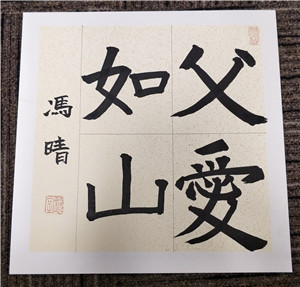 父愛
如山
馮晴